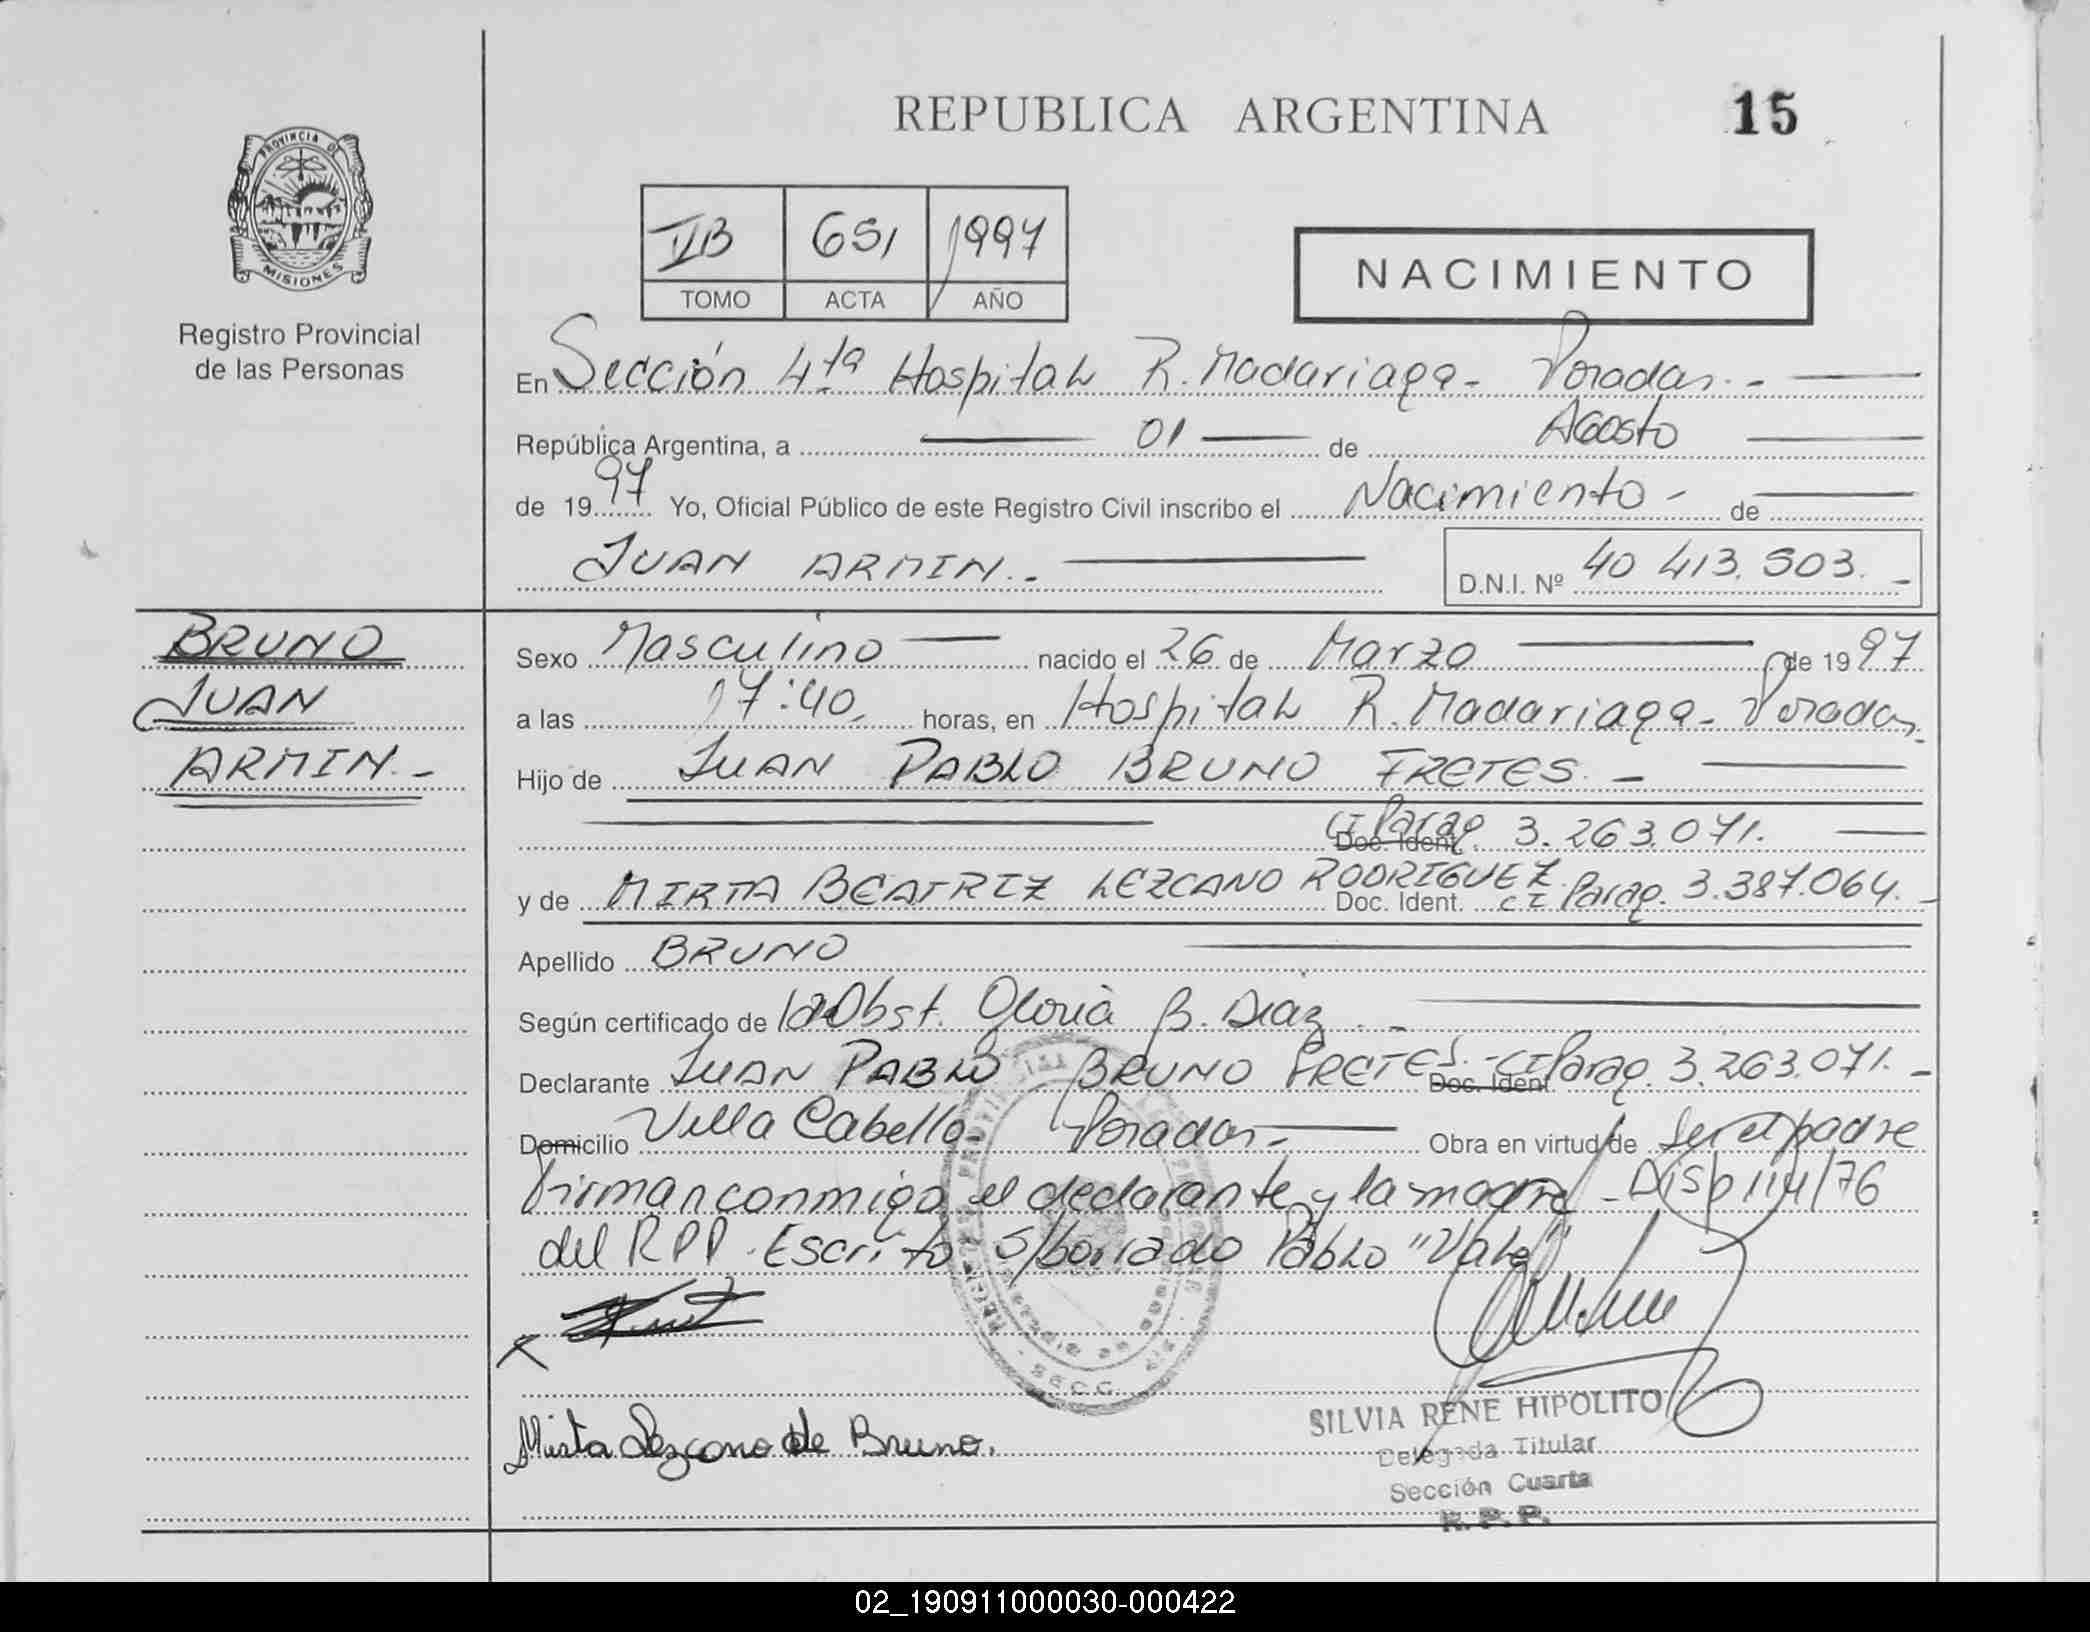 REPUBLICA ARGENTINA 15
PROVINCIA DE
MISIONES
Registro Provincial
de las Personas
651 1997
TOMO ACTA AÑO
NACIMIENTO
En Sección 4ta Hospital R. Madariaga - Posadas.-
República Argentina, a 01 de Agosto
de 1997 Yo, Oficial Público de este Registro Civil inscribo el Nacimiento - de
JUAN ARMIN.-
D.N.I. Nº 40 413.503.-
BRUNO
JUAN
ARMIN.-
Sexo Masculino nacido el 26 de Marzo de 1997
a las 17:40 horas, en Hospital R. Madariaga - Posadas
Hijo de JUAN PABLO BRUNO FRETES.-
Doc. Ident. CI Parag. 3.263.071.
y de MIRTA BEATRIZ LEZCANO RODRIGUEZ Doc. Ident. CI Parag. 3.387.064.-
Apellido BRUNO
Según certificado de la Obst. Gloria B. Diaz.-
Declarante JUAN PABLO BRUNO FRETES.- Doc. Ident CI Parag. 3.263.071.-
Domicilio Villa Cabello. Posadas.- Obra en virtud de ser el padre
firman conmigo el declarante y la madre - Disp 114/76
del RPP. Escrito s/borrado Pablo "Vale"
Mirta Lezcano de Bruno.
SILVIA RENE HIPOLITO
Delegada Titular
Sección Cuarta
R. P. P.
02_190911000030-000422